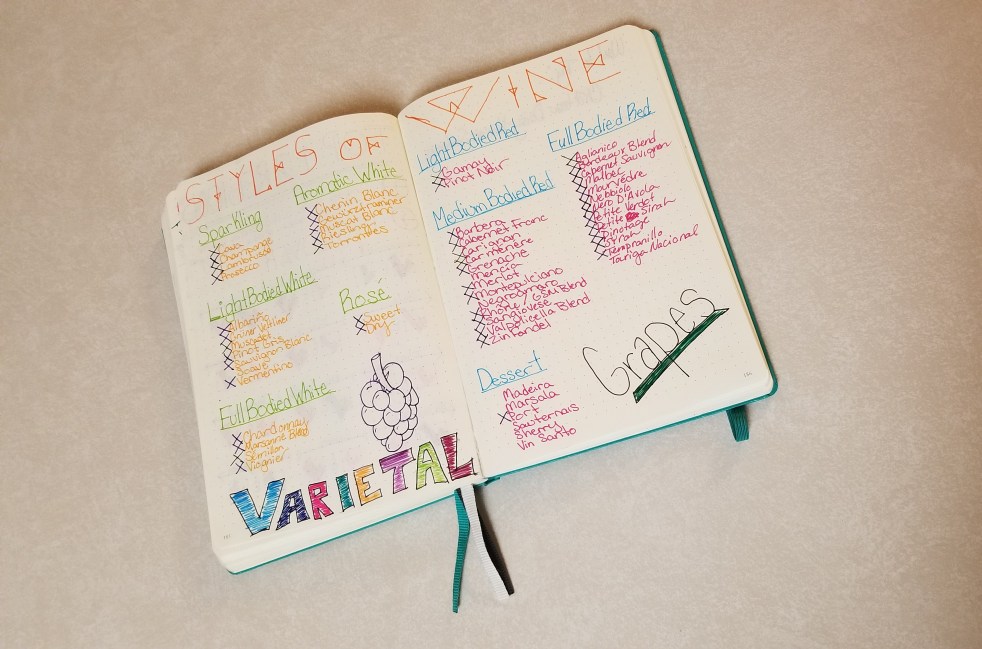 STYLES OF
Sparkling
Cava
Champagne
Lambrusco
Prosecco
Aromatic White
Chenin Blanc
Gewürztraminer
Muscat Blanc
Riesling
Torrontes
Light Bodied White
Albariño
Grüner Veltliner
Muscadet
Pinot Gris
Sauvignon Blanc
Soave
Vermentino
Rosé
Sweet
Dry
Full Bodied White
Chardonnay
Marsanne Blend
Semillon
Viognier
VARIETAL
WINE
Light Bodied Red
Gamay
Pinot Noir
Medium Bodied Red
Barbera
Cabernet Franc
Carignan
Carménère
Grenache
Mencia
Merlot
Montepulciano
Negroamaro
Rhône / GSM Blend
Sangiovese
Valpolicella Blend
Zinfandel
Dessert
Madeira
Marsala
Port
Sauternais
Sherry
Vin Santo
Full Bodied Red
Aglianico
Bordeaux Blend
Cabernet Sauvignon
Malbec
Mourvèdre
Nebbiolo
Nero D'Avola
Petite Verdot
Petite Sirah
Pinotage
Syrah
Tempranillo
Touriga Nacional
Grapes